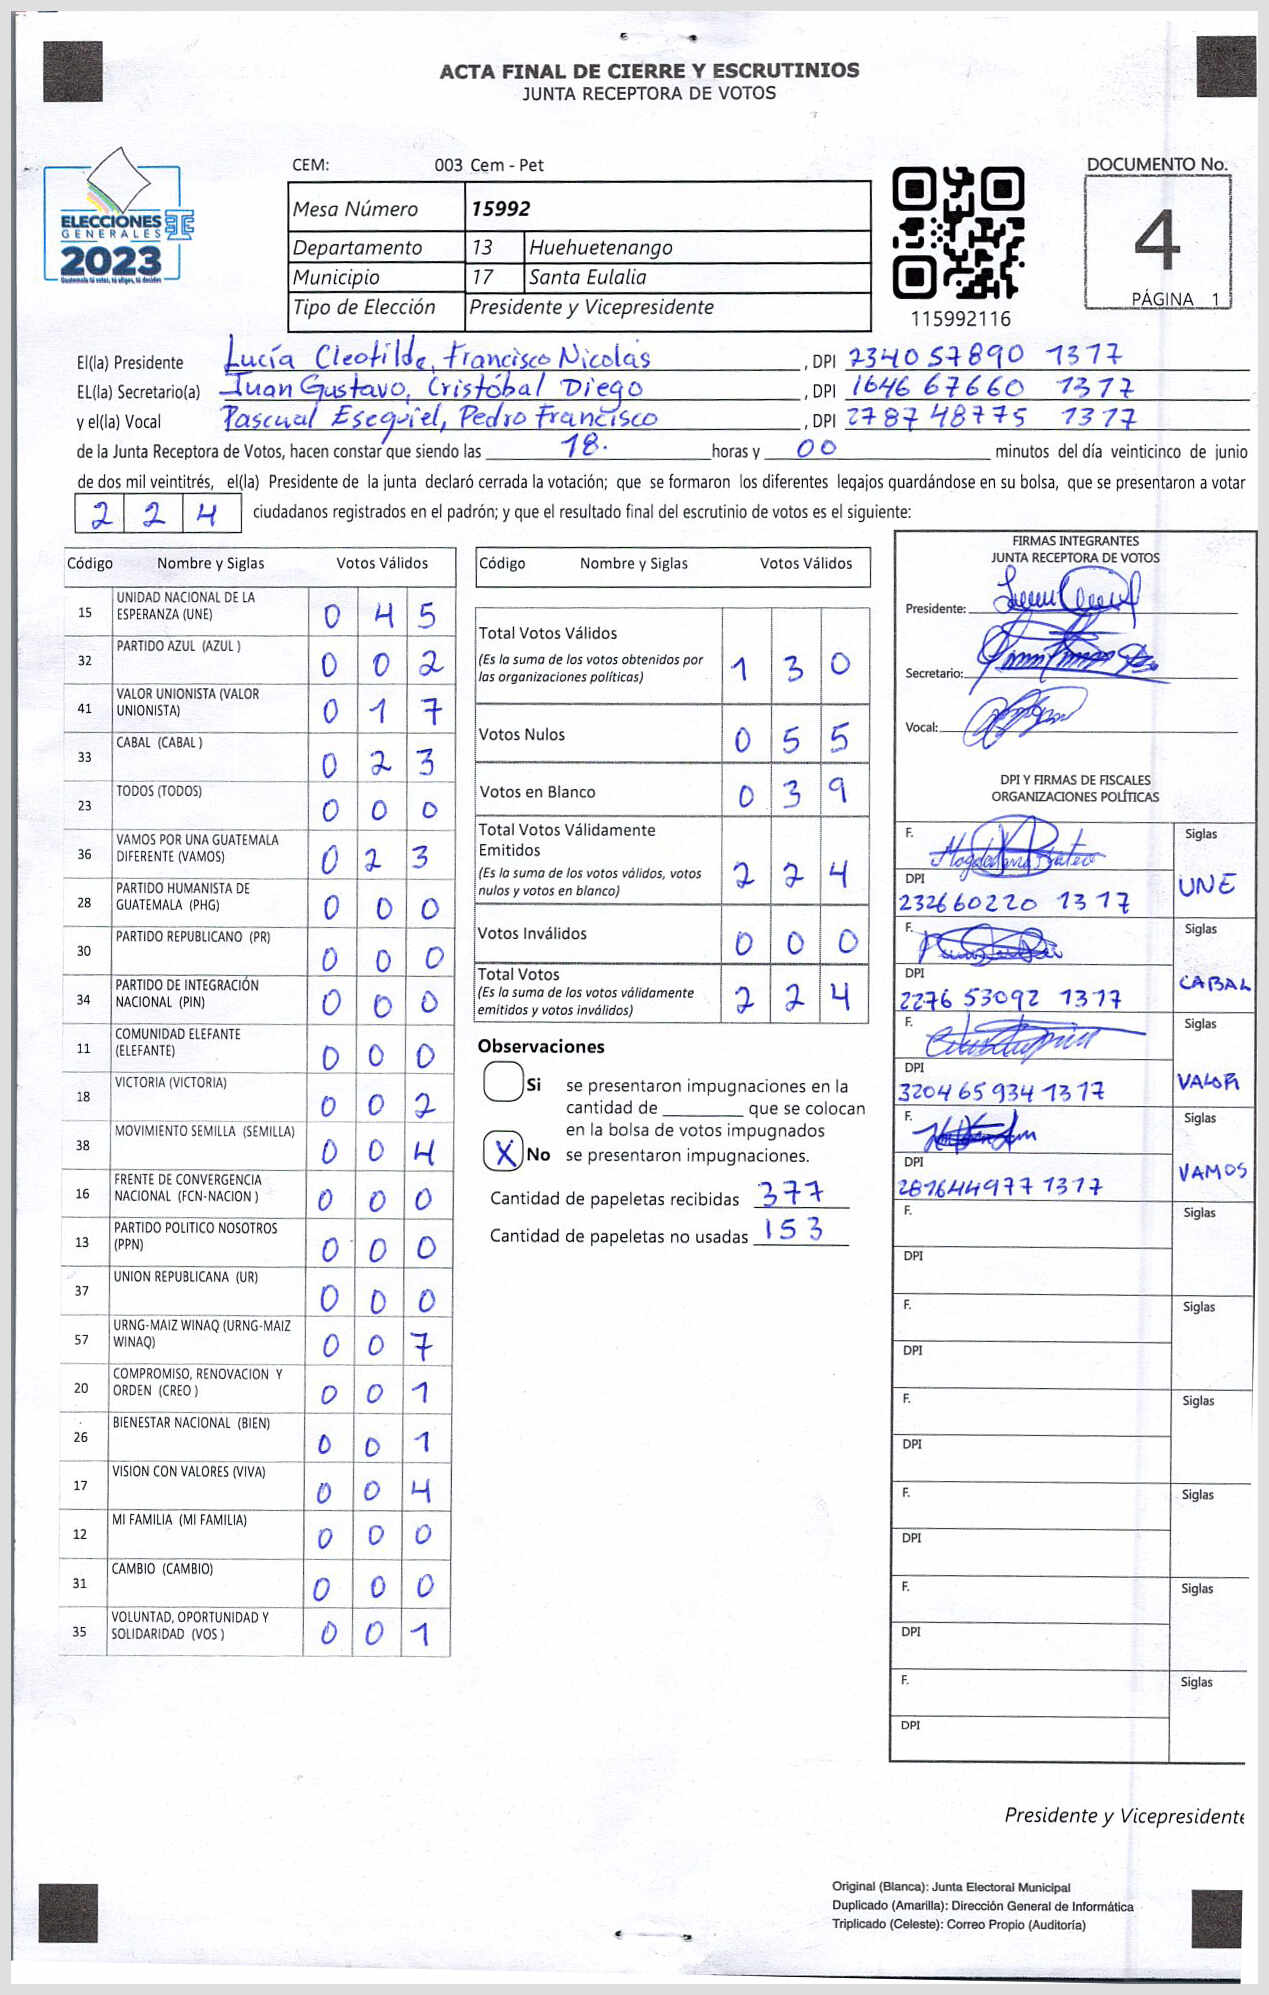 ACTA FINAL DE CIERRE Y ESCRUTINIOS
JUNTA RECEPTORA DE VOTOS
ELECCIONES
GENERALES
2023
CEM: 003 Cem - Pet
Mesa Número 15992
Departamento 13 Huehuetenango
Municipio 17 Santa Eulalia
Tipo de Elección Presidente y Vicepresidente
115992116
DOCUMENTO No.
4
PÁGINA 1
El(la) Presidente Lucía Cleotilde, Francisco Nicolás, DPI 2340 57890 1317
EL(la) Secretario(a) Juan Gustavo, Cristóbal Diego, DPI 1646 67660 1317
y el(la) Vocal Pascual Esequiel, Pedro Francisco, DPI 2787 48775 1317
de la Junta Receptora de Votos, hacen constar que siendo las 18. horas y 00 minutos del día veinticinco de junio
de dos mil veintitrés, el(la) Presidente de la junta declaró cerrada la votación; que se formaron los diferentes legajos quardándose en su bolsa, que se presentaron a votar
224 ciudadanos registrados en el padrón; y que el resultado final del escrutinio de votos es el siguiente:
Código Nombre y Siglas Votos Válidos
15 UNIDAD NACIONAL DE LA ESPERANZA (UNE) 0 4 5
32 PARTIDO AZUL (AZUL ) 0 0 2
41 VALOR UNIONISTA (VALOR UNIONISTA) 0 1 7
33 CABAL (CABAL ) 0 2 3
23 TODOS (TODOS) 0 0 0
36 VAMOS POR UNA GUATEMALA DIFERENTE (VAMOS) 0 2 3
28 PARTIDO HUMANISTA DE GUATEMALA (PHG) 0 0 0
30 PARTIDO REPUBLICANO (PR) 0 0 0
34 PARTIDO DE INTEGRACIÓN NACIONAL (PIN) 0 0 0
11 COMUNIDAD ELEFANTE (ELEFANTE) 0 0 0
18 VICTORIA (VICTORIA) 0 0 2
38 MOVIMIENTO SEMILLA (SEMILLA) 0 0 4
16 FRENTE DE CONVERGENCIA NACIONAL (FCN-NACION ) 0 0 0
13 PARTIDO POLITICO NOSOTROS (PPN) 0 0 0
37 UNION REPUBLICANA (UR) 0 0 0
57 URNG-MAIZ WINAQ (URNG-MAIZ WINAQ) 0 0 7
20 COMPROMISO, RENOVACION Y ORDEN (CREO ) 0 0 1
26 BIENESTAR NACIONAL (BIEN) 0 0 1
17 VISION CON VALORES (VIVA) 0 0 4
12 MI FAMILIA (MI FAMILIA) 0 0 0
31 CAMBIO (CAMBIO) 0 0 0
35 VOLUNTAD, OPORTUNIDAD Y SOLIDARIDAD (VOS ) 0 0 1
Código Nombre y Siglas Votos Válidos
Total Votos Válidos
(Es la suma de los votos obtenidos por las organizaciones políticas) 1 3 0
Votos Nulos 0 5 5
Votos en Blanco 0 3 9
Total Votos Válidamente Emitidos
(Es la suma de los votos válidos, votos nulos y votos en blanco) 2 2 4
Votos Inválidos 0 0 0
Total Votos
(Es la suma de los votos válidamente emitidos y votos inválidos) 2 2 4
Observaciones
Si se presentaron impugnaciones en la
cantidad de ________ que se colocan
en la bolsa de votos impugnados
X No se presentaron impugnaciones.
Cantidad de papeletas recibidas 377
Cantidad de papeletas no usadas 153
FIRMAS INTEGRANTES
JUNTA RECEPTORA DE VOTOS
Presidente:
Secretario:
Vocal:
DPI Y FIRMAS DE FISCALES
ORGANIZACIONES POLÍTICAS
F. Siglas
DPI UNE
232660220 1317
F. Siglas
DPI CABAL
2276 53092 1317
F. Siglas
DPI VALOR
3204 65 934 1317
F. Siglas
DPI VAMOS
281644977 1317
F. Siglas
DPI
F. Siglas
DPI
F. Siglas
DPI
F. Siglas
DPI
F. Siglas
DPI
F. Siglas
DPI
Presidente y Vicepresidente
Original (Blanca): Junta Electoral Municipal
Duplicado (Amarilla): Dirección General de Informática
Triplicado (Celeste): Correo Propio (Auditoría)